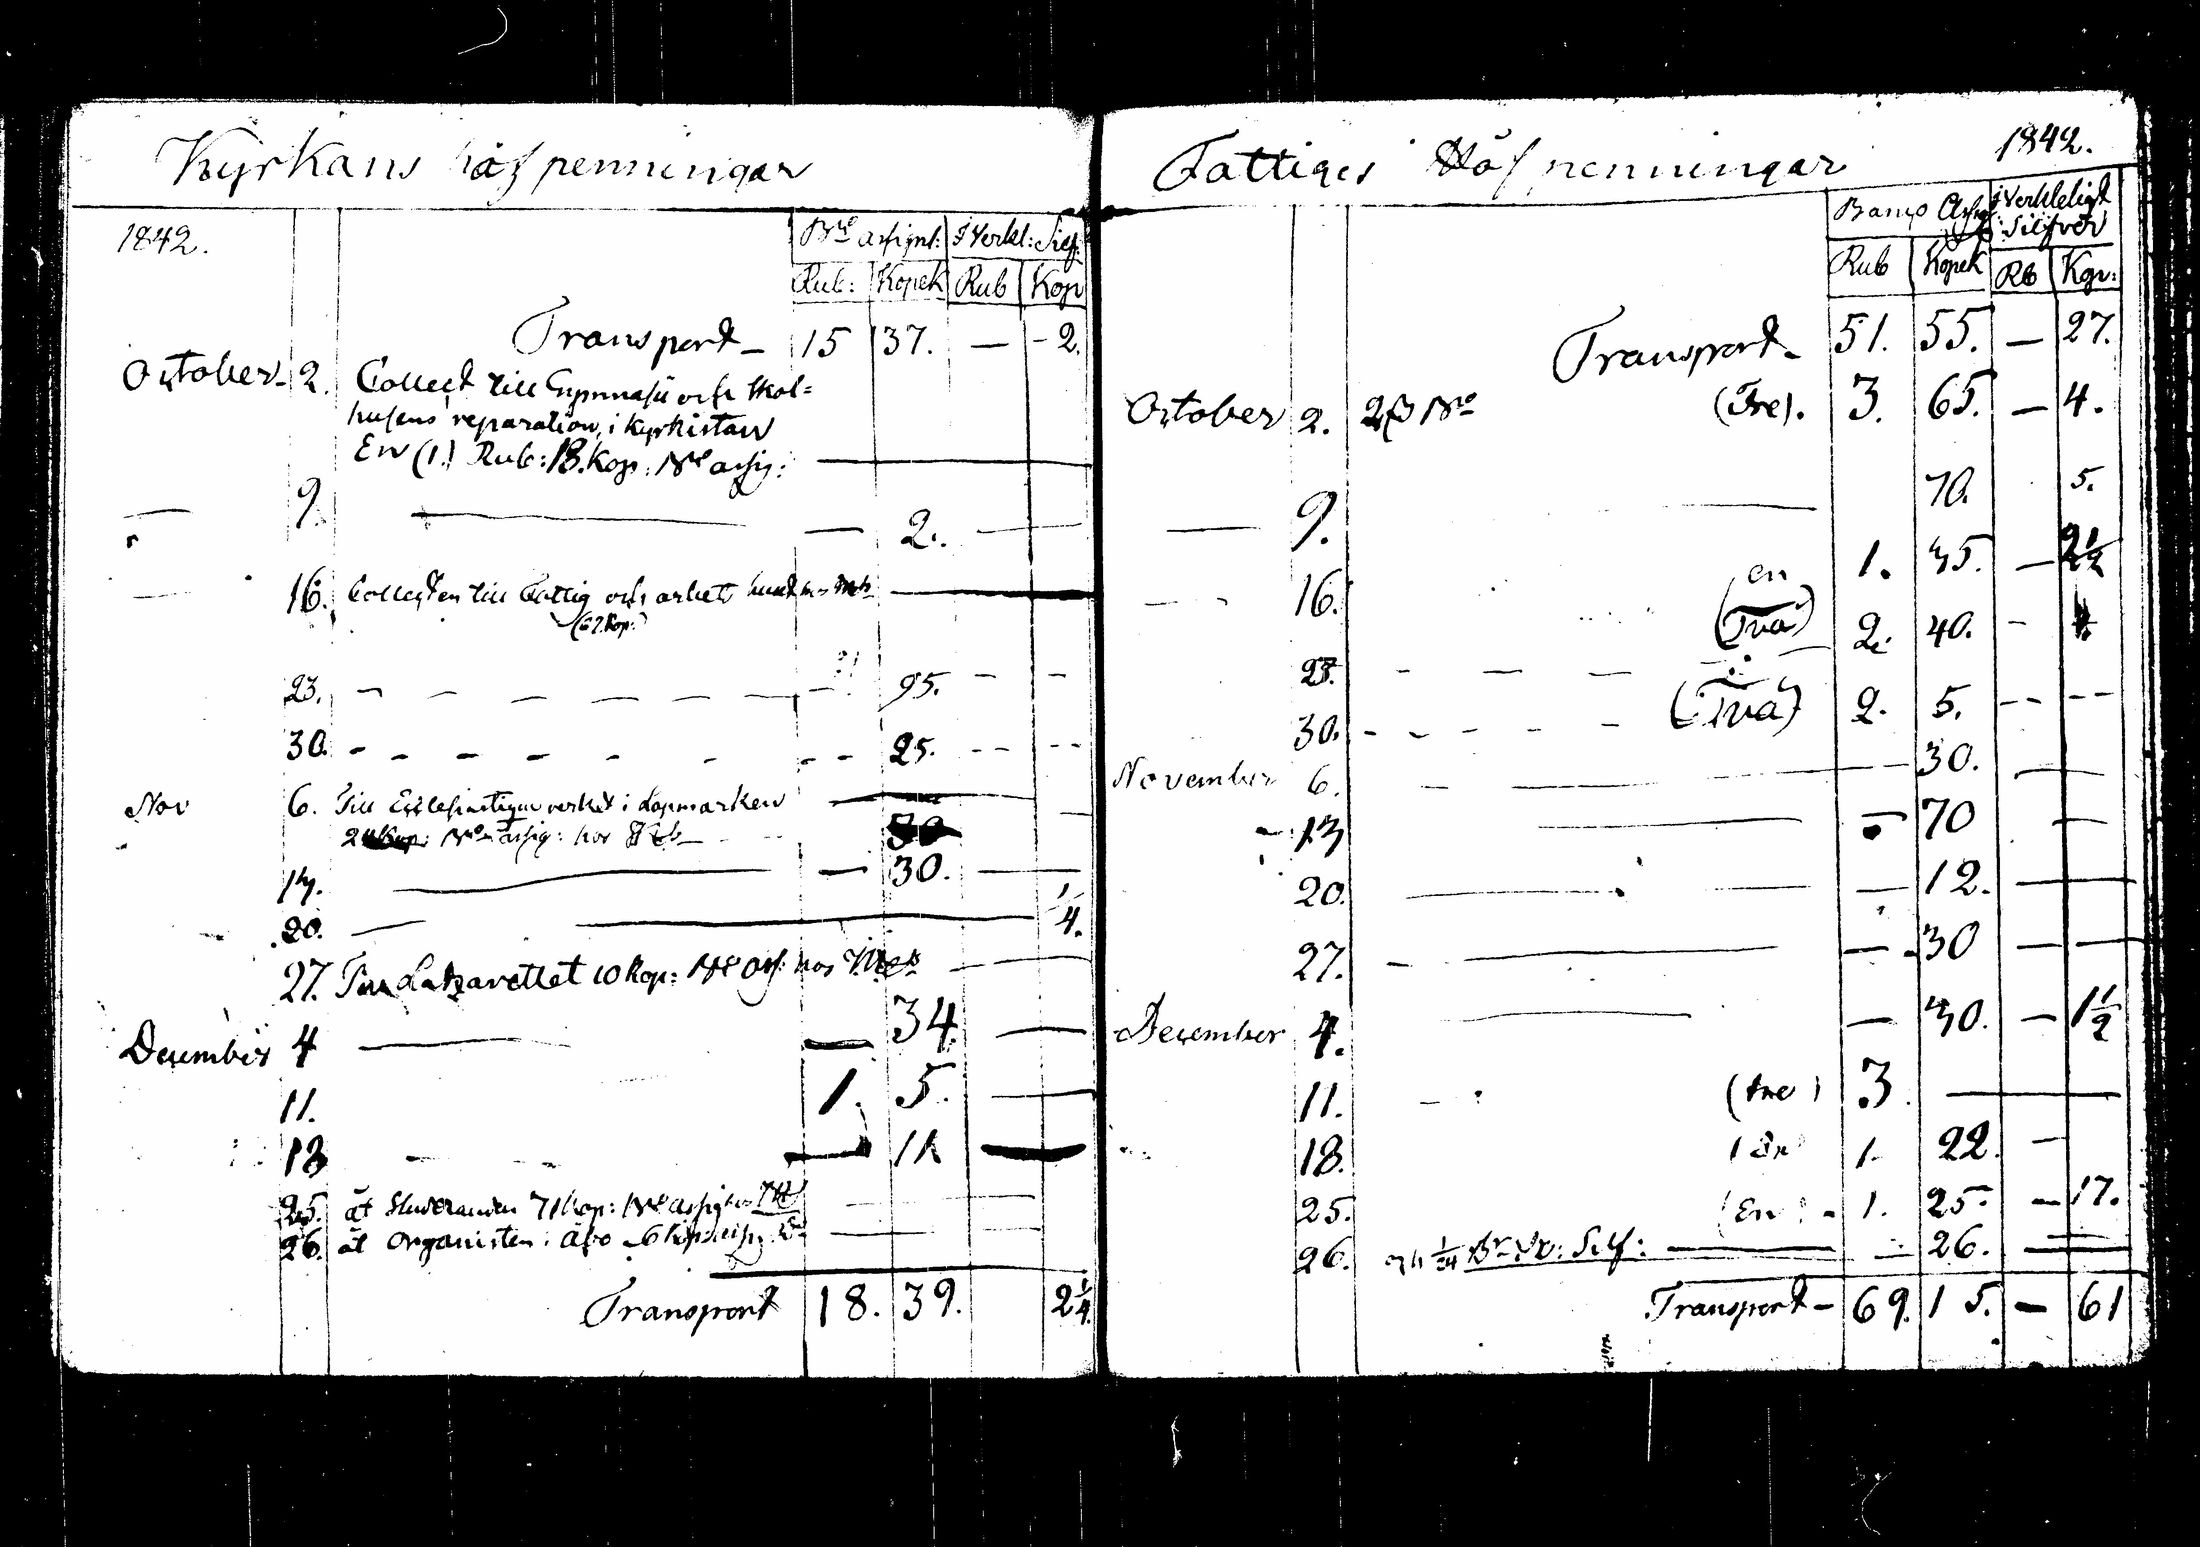 Kyrkans håfpenningar
1842.
Bco assignt: i Verkl: Silf:
Rub: Kopek Rub Kop
Transport - 15 37. — - 2.
October - 2. Collect till Gymnasii och Skol=
husens reparation, i Kyrkistan
En (1.) Rub: 13. Kop: Bco assig: —
— 9. — — 2. — —
— 16. Collecten till Fattig och arbets huset
(62 Kop:)
23. — — — — — — 95. - -
30. - - - - - - - 25. - - - -
Nov 6. Till Ecclesiastique verket i Lapmarken —
Kop: Bco assig: hos
13. — — 30. —
20. — — 1/4.
27. Till Lazarettet 10 Kop: Bco ass: hos — —
December 4 — — 34. —
11. 1. 5. —
18 - - — 11 —
25. åt Studeranden 71 kop: Bco assig hos — —
26. åt Organisten i Åbo 6 kop: — —
Transport 18. 39. 2 1/4.
Fattiges Håfpenningar
1842.
Banco Assig i Verkleligt
Silfver
Rub Kopek Rb Kop:
Transport - 51. 55. — 27.
October 2. Bco (Tre). 3. 65. — 4.
— 9. — 70. 5.
— 16. en 1. 35. — 2 1/2
(Två) 2. 40. -
23. - — — —
30. - - - - - (Två) 2. 5. -- --
November 6. - — — 30. — —
- 13 — — 70 —
20. — — 12. — —
27. - — — 30 — —
December 4. — — 30. — 1 1/2
11. - (tre) 3. — —
18. (En) 1. 22. —
25. (En) - 1. 25. — 17.
26. och Silf: — — 26. —
Transport - 69. 15. — 61